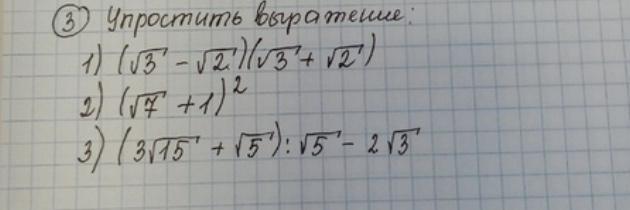 ③ Упростить выражение:
1) (√3 - √2)(√3 + √2)
2) (√7 + 1)²
3) (3√15 + √5) : √5 - 2√3